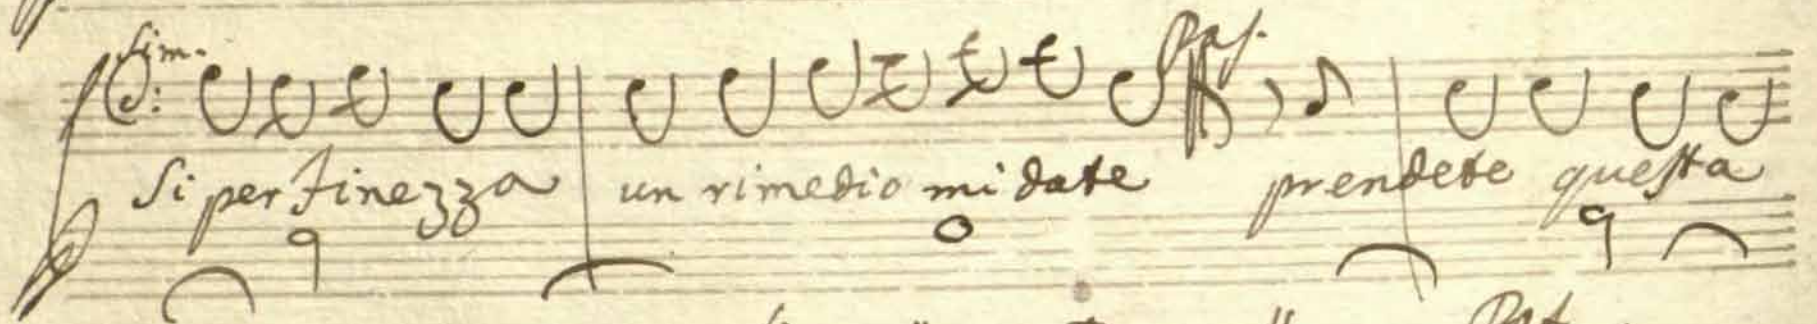 Sim. Pas.
Si per finezza un rimedio mi date prendete questa